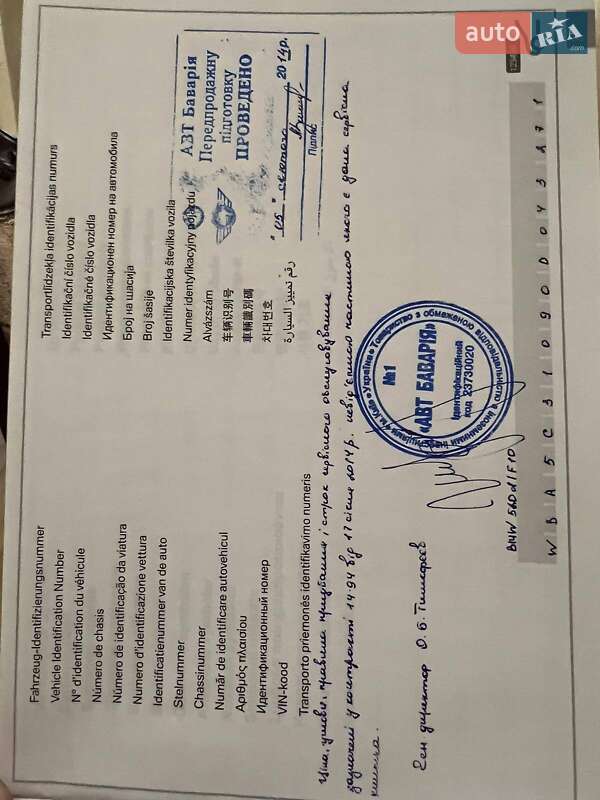 auto RIA .com
Fahrzeug-Identifizierungsnummer
Vehicle Identification Number
N° d'identification du véhicule
Número de chasis
Número de identificação da viatura
Numero d'identificazione vettura
Identificatienummer van de auto
Stelnummer
Chassinummer
Număr de identificare autovehicul
Αριθμός πλαισίου
Идентификационный номер
VIN-kood
Transporto priemonės identifikavimo numeris
Transportlīdzekļa identifikācijas numurs
Identifikační číslo vozidla
Identifikačné číslo vozidla
Идентификационен номер на автомобила
Број на шасија
Broj šasije
Identifikacijska številka vozila
Numer identyfikacyjny pojazdu
Alvázszám
车辆识别号
車輛識別碼
차대번호
رقم تمييز السيارة
АВТ Баварія
Передпродажну
підготовку
ПРОВЕДЕНО
"05" лютого 2014р.
Підпис
Ціна, умови, правила придбання і строк сервісного обслуговування
зазначені у контракті 1494 від 17 січня 2014р. невід'ємною частиною якого є дана сервісна
книжка.
Ген директор О.Б. Тимофеев
Україна * Товариство з обмеженою відповідальністю з іноземними інвестиціями * м. Київ
№1
«АВТ БАВАРІЯ»
Ідентифікаційний
код 23730020
BMW 550d/F10
WBA5C31090D043A71